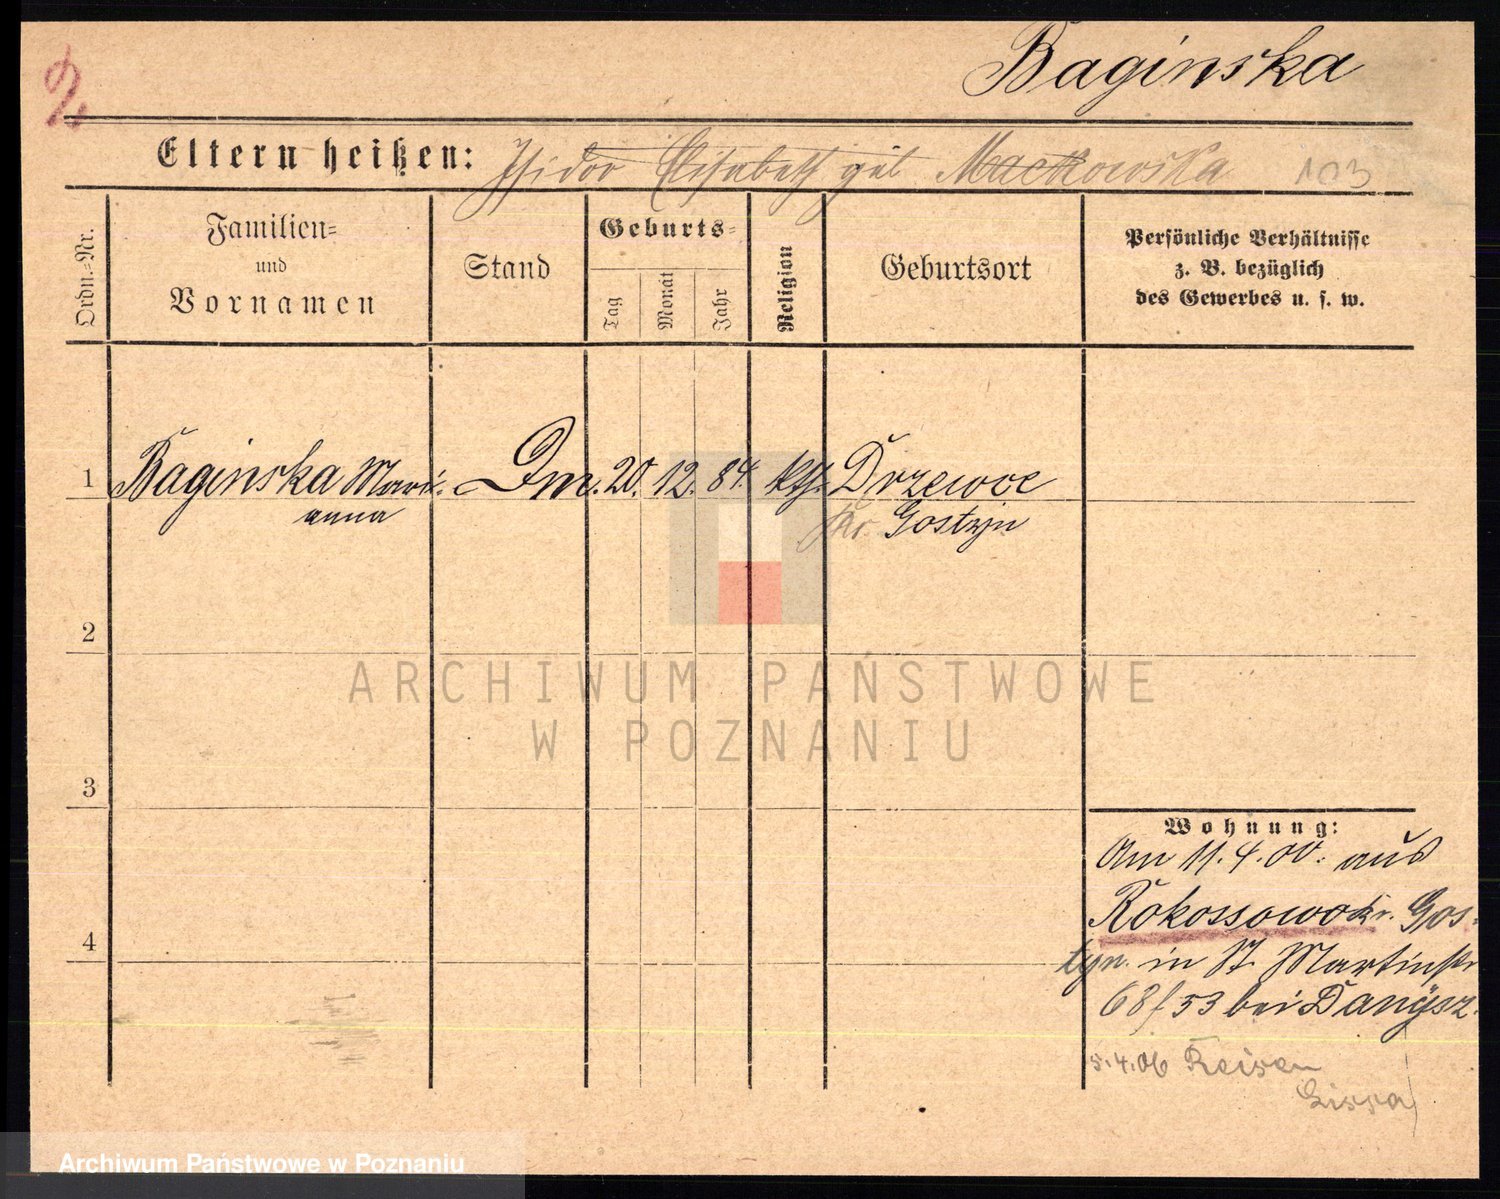 Baginska
2
Eltern heißen: Isidor Elisabeth geb Mackowska 103
Ordn.=Nr.
Familien=
und
Vornamen
Stand
Geburts=
Tag
Monat
Jahr
Religion
Geburtsort
Persönliche Verhältnisse
z. B. bezüglich
des Gewerbes u. s. w.
1 Baginska Mari- Dm. 20. 12. 84. kth. Drzewce
anna Kr. Gostyn
2
3
4
Wohnung:
Am 11.4.00. aus
Rokossowo Kr. Gos-
tyn. in St. Martinstr
68/53 bei Danysz.
5.4.06 Reisen
Lissa
ARCHIWUM PAŃSTWOWE
W POZNANIU
Archiwum Państwowe w Poznaniu